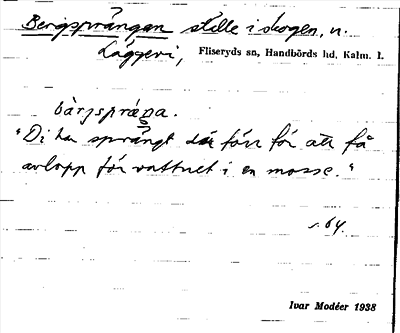 Bergsprängan ställe i skogen, n.
Läggevi, Fliseryds sn, Handbörds hd, Kalm. l.
bärjspräŋa.
"Di ha sprängt där förr för att få
avlopp för vattnet i en mosse."
s. 64.
Ivar Modéer 1938